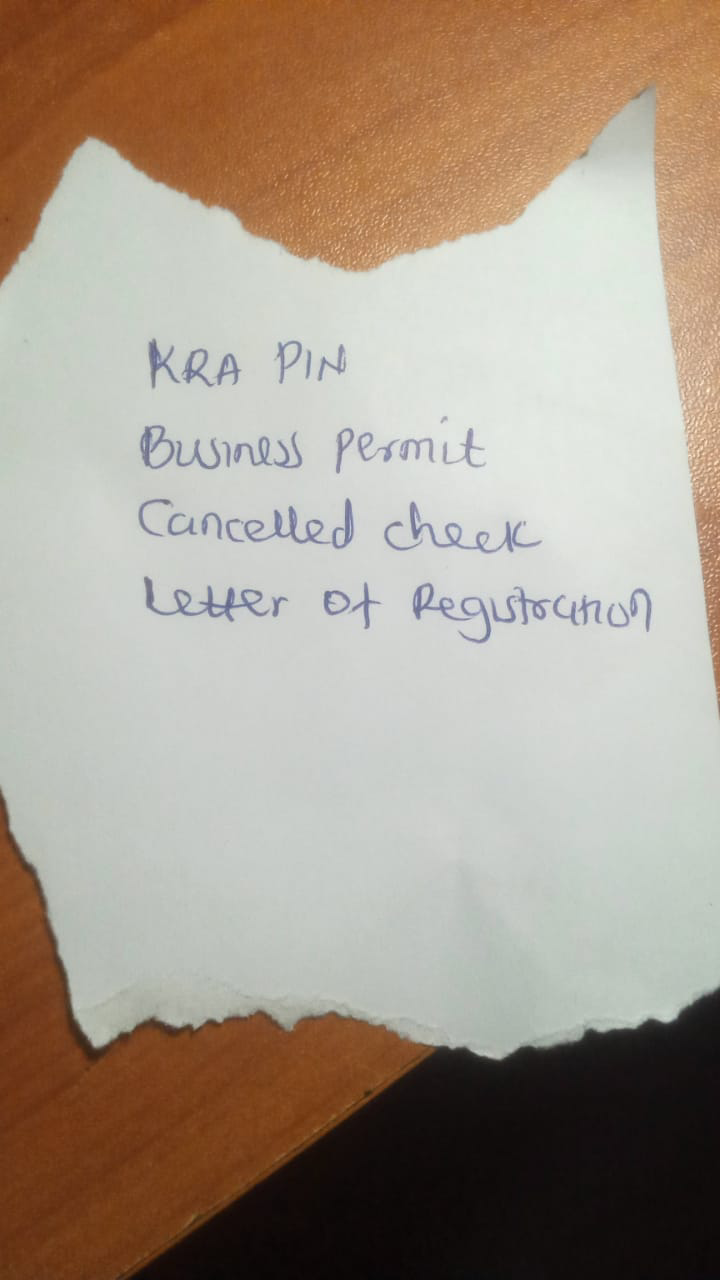 KRA PIN
Business permit
Cancelled check
Letter of Registration